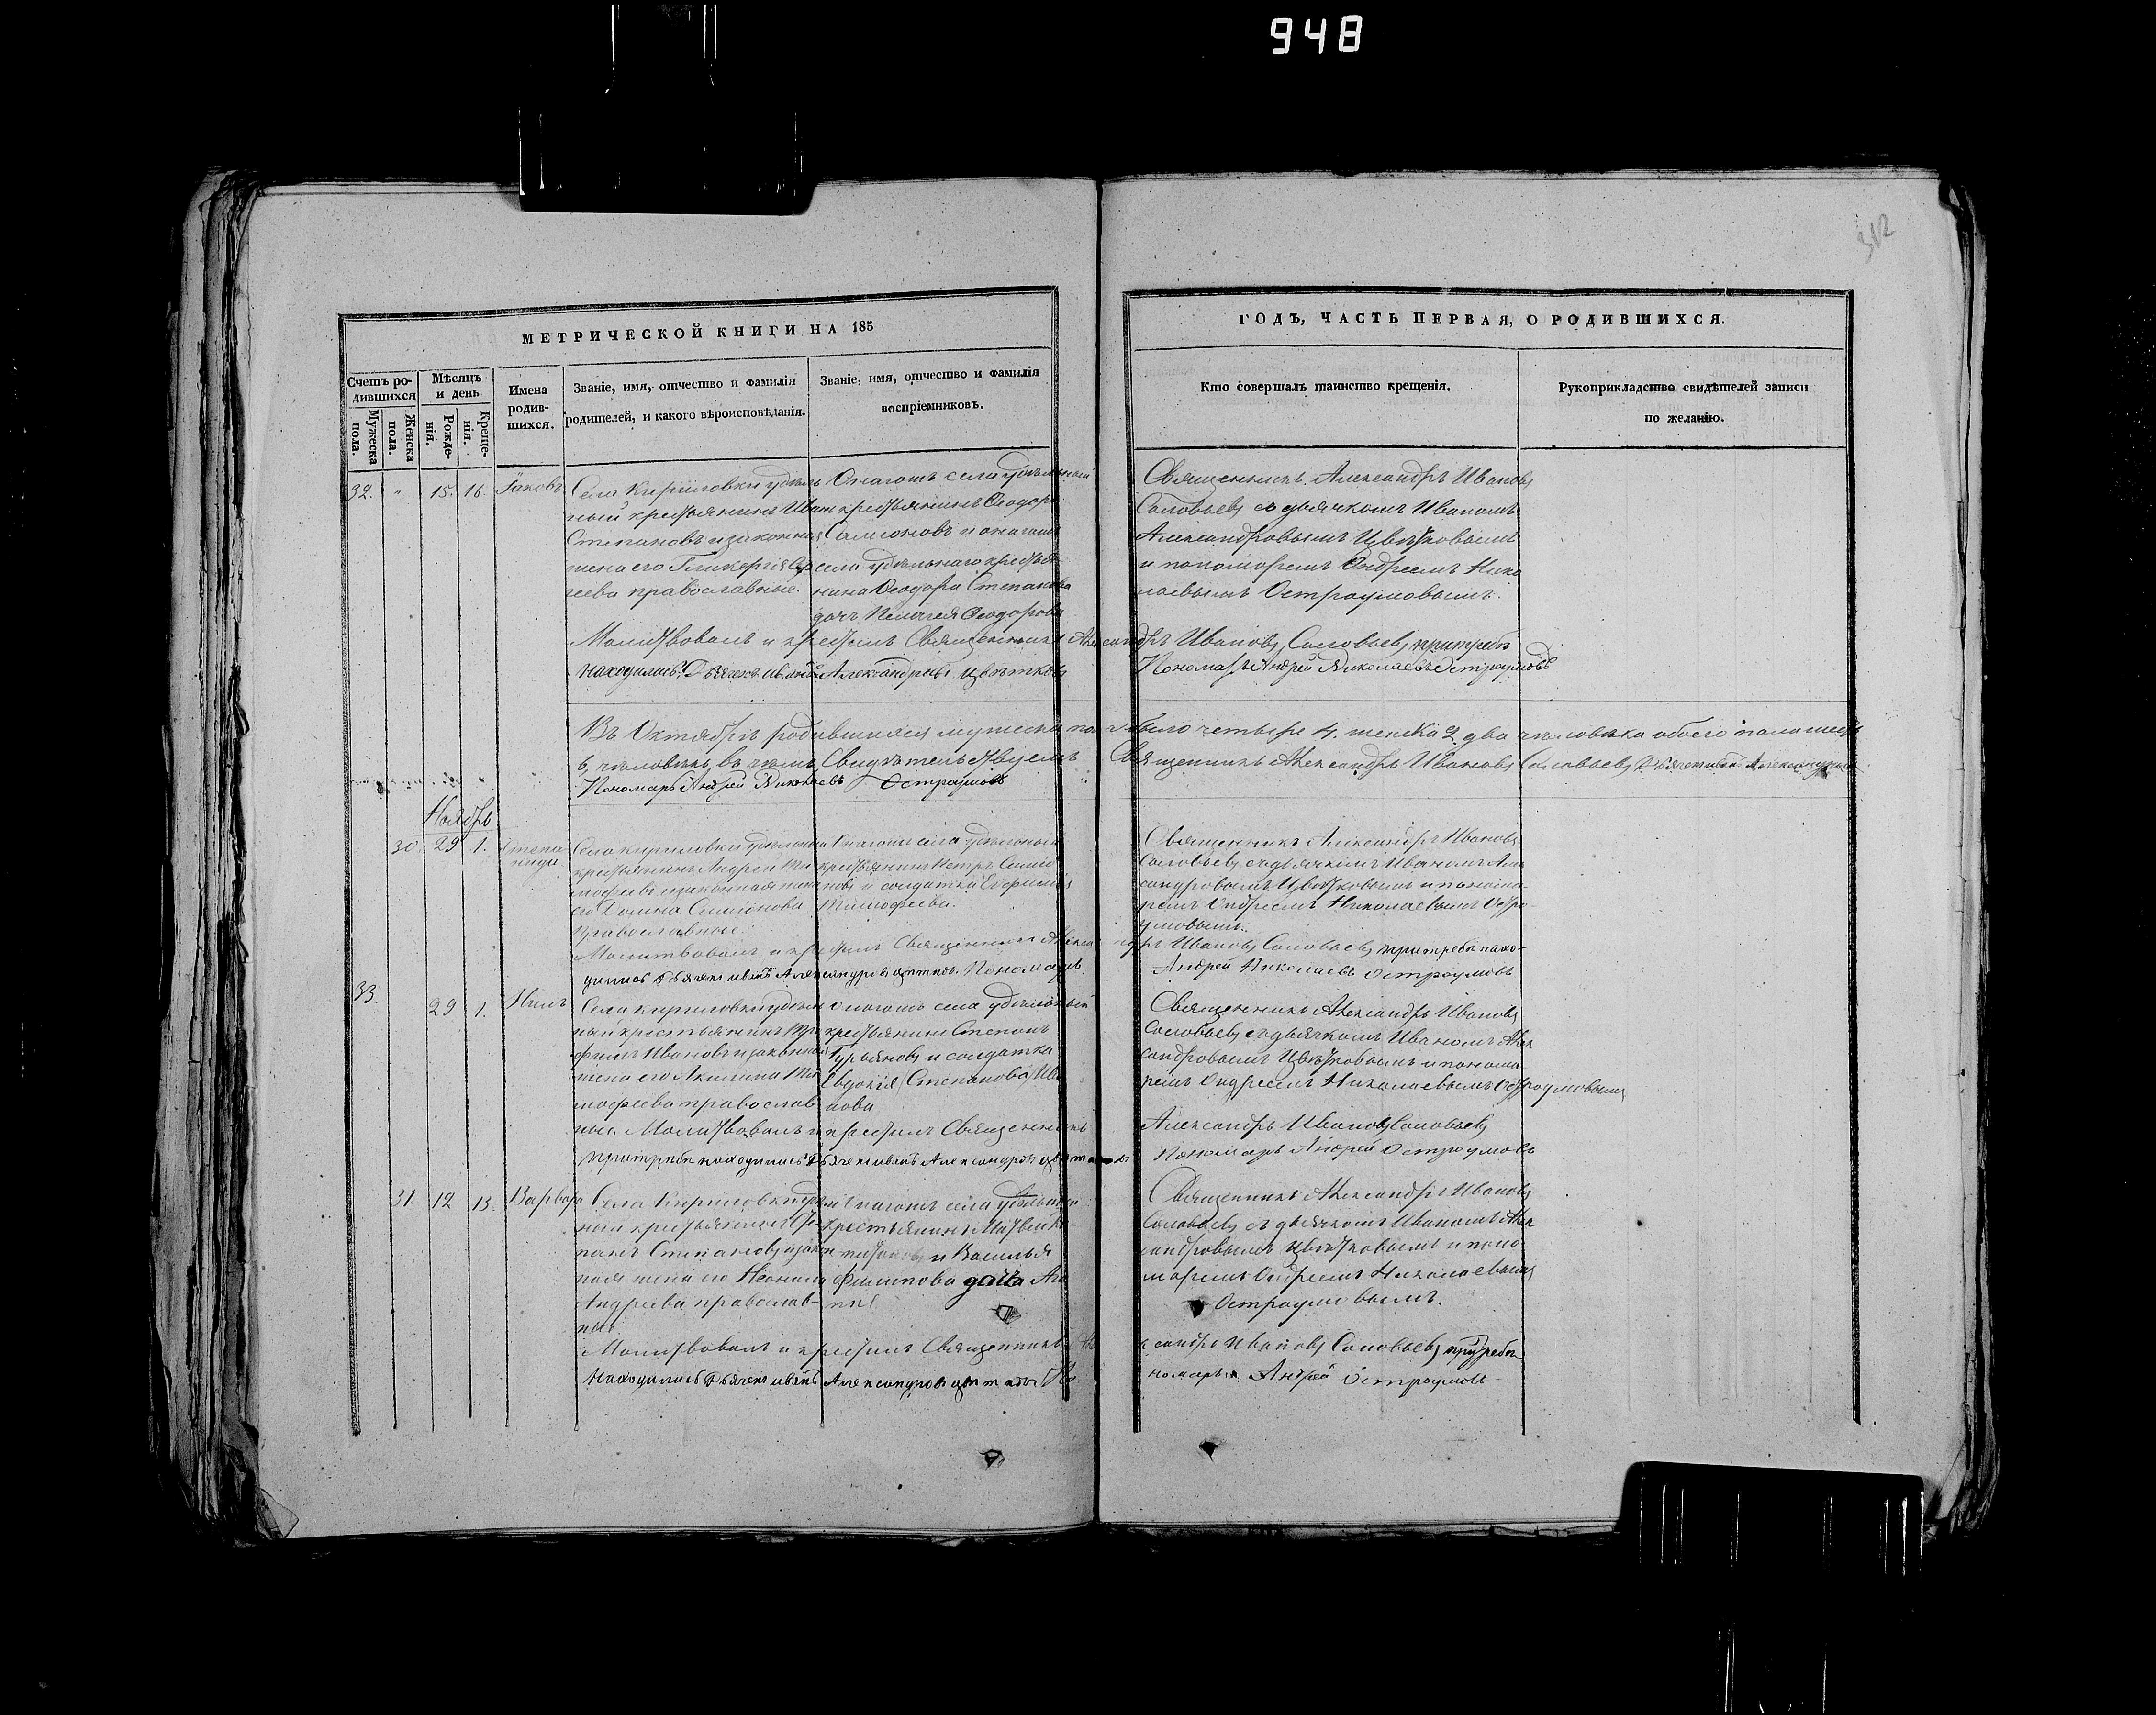 948
312
МЕТРИЧЕСКОЙ КНИГИ НА 185
ГОДЪ, ЧАСТЬ ПЕРВАЯ, О РОДИВШИХСЯ.
Счетъ ро-
дившихся
Мужеска
пола.
Женска
пола.
Мѣсяцъ
и день
Рожде-
нія.
Креще-
нія.
Имена
родив-
шихся.
Званіе, имя, отчество и фамилія
родителей, и какого вѣроисповѣданія.
Званіе, имя, отчество и фамилія
воспріемниковъ.
Кто совершалъ таинство крещенія.
Рукоприкладство свидѣтелей записи
по желанію.
32. " 15. 16. Іаковъ
Села Кириловки удѣль
ный крестьянинъ Иванъ
Степановъ и законная
жена его Гликерія
православные.
Онагожъ села удѣльный
крестьянинъ Ѳеодоръ
и онагожъ
села удѣльнаго крестья
нина Ѳеодора Степанова
дочь Пелагея Ѳеодорова
Священникъ Александръ Ивановъ
Соловьевъ съ дьячкомъ Иваномъ
Александровымъ Цвѣтковымъ
и пономаремъ Андреемъ Нико
лаевымъ Остроумовымъ.
Молитвовалъ и крестилъ Священникъ Александръ Ивановъ Соловьевъ при требѣ
находились: Дьячекъ Иванъ Александровъ Цвѣтковъ Пономарь Андрей Николаевъ Остроумовъ
Въ Октябрѣ родившихся мужеска пола было четыре 4. женска 2 два человѣка обоего пола шесть
6, человѣкъ, въ чемъ Свидѣтельствуемъ Священникъ Александръ Ивановъ Соловьевъ Дьячекъ Иванъ Александровъ
Пономарь Андрей Николаевъ Остроумовъ
Ноябрь
30 29 1.
Села Кириловки удѣльный
крестьянинъ Андрей Ти
мофеевъ и законная жена
его Домна Симіонова
православные.
Онагожъ села удѣльный
крестьянинъ Петръ Симіо
новъ и солдатка Евфимія
Тимофеева.
Священникъ Александръ Ивановъ
Соловьевъ съ дьячкомъ Иваномъ Алек
сандровымъ Цвѣтковымъ и понома-
ремъ Андреемъ Николаевымъ Остро-
умовымъ.
Молитвовалъ и крестилъ Священникъ Александръ Ивановъ Соловьевъ при требѣ нахо-
дились Дьячекъ Иванъ Александровъ Цвѣтковъ Пономарь Андрей Николаевъ Остроумовъ
33. 29 1. Нилъ
Села Кириловки удѣль
ный крестьянинъ Тро
фимъ Ивановъ и законная
жена его Акилина Ти
мофеева православ
ные.
Онагожъ села удѣльный
крестьянинъ Степанъ
Гурьяновъ и солдатка
Евдокія Степанова Ива
нова
Священникъ Александръ Ивановъ
Соловьевъ съ дьячкомъ Иваномъ Алек
сандровымъ Цвѣтковымъ и понома
ремъ Андреемъ Николаевымъ Остроумовымъ
Молитвовалъ и крестилъ Священникъ Александръ Ивановъ Соловьевъ
при требѣ находились Дьячекъ Иванъ Александровъ Цвѣтковъ Пономарь Андрей Остроумовъ
31. 12 13. Варвара
Села Кириловки удѣль
ный крестьянинъ
Степановъ и закон
ная жена его Неонила
Андреева православ-
ные.
Онагожъ села удѣльный
крестьянинъ Матвей
и Василья
Филипова
Священникъ Александръ Ивановъ
Соловьевъ съ дьячкомъ Иваномъ Алек
сандровымъ Цвѣтковымъ и поно
маремъ Андреемъ Николаевымъ
Остроумовымъ.
Молитвовалъ и крестилъ Священникъ Александръ Ивановъ Соловьевъ при требѣ
находились Дьячекъ Иванъ Александровъ Цвѣтковъ Пономарь Андрей Остроумовъ